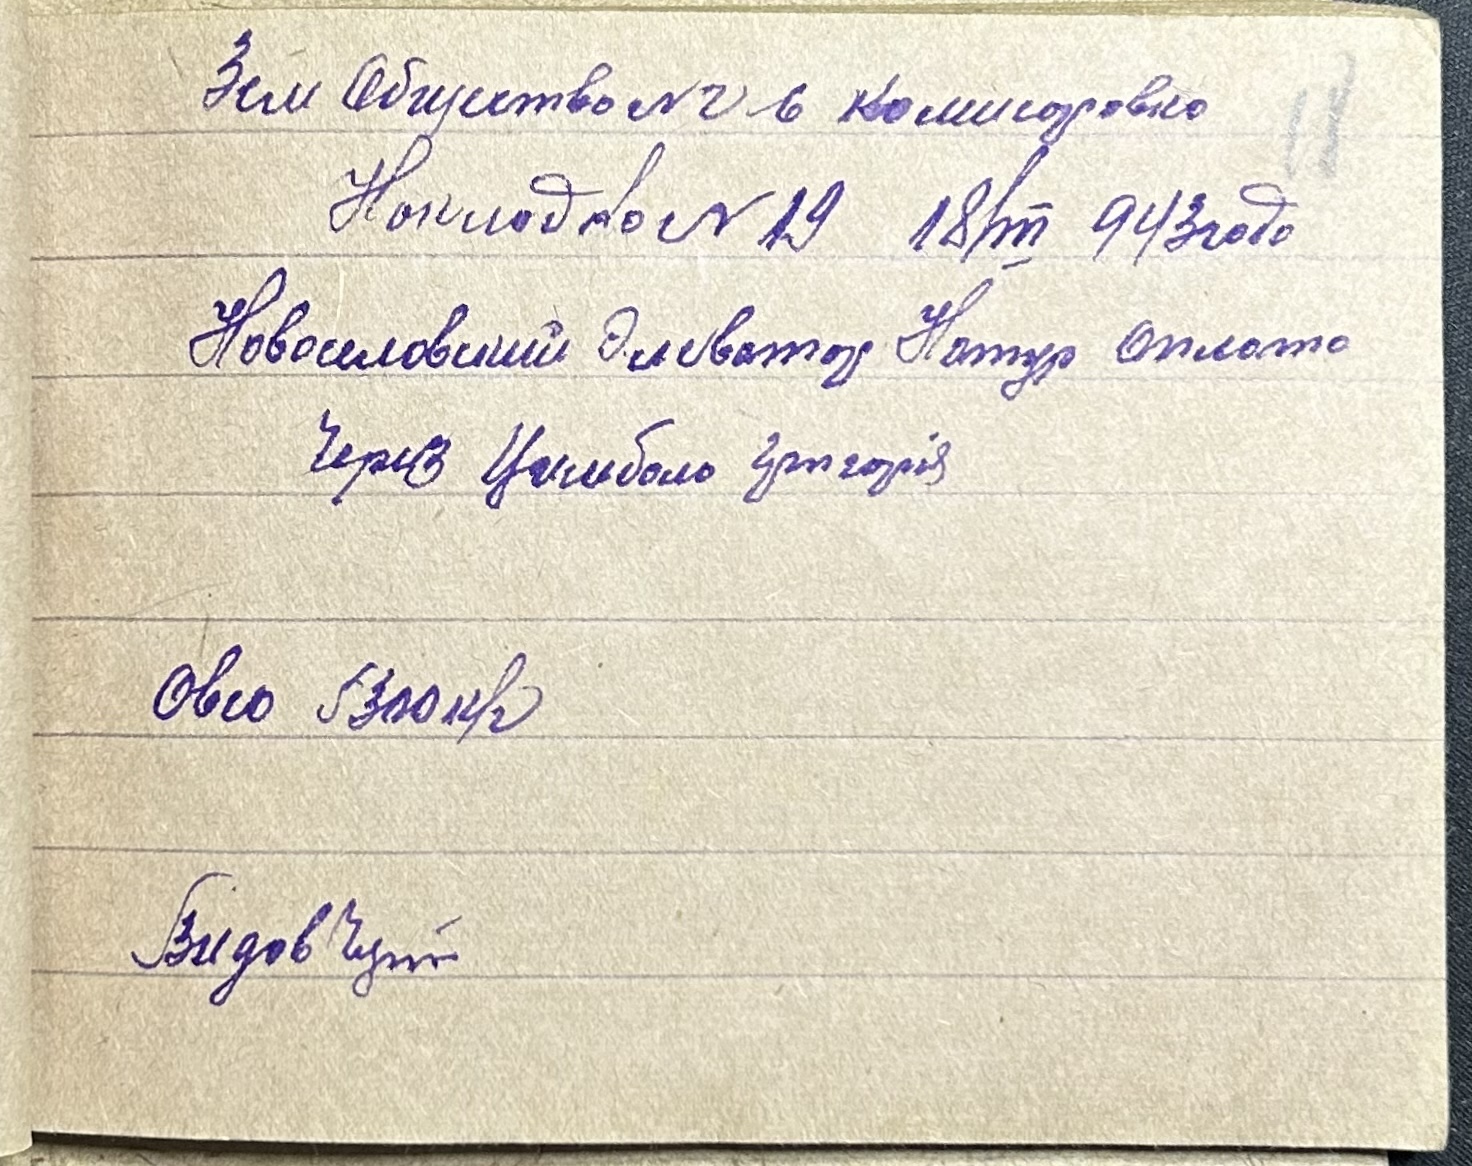 11
Зем Общество № 2 с Комисаровка
Накладная № 19 18/III 943 года
Новоселовский Элеватор Натур Оплата
Через Цимбала Григорія
Овса 5300 к/г
Видав